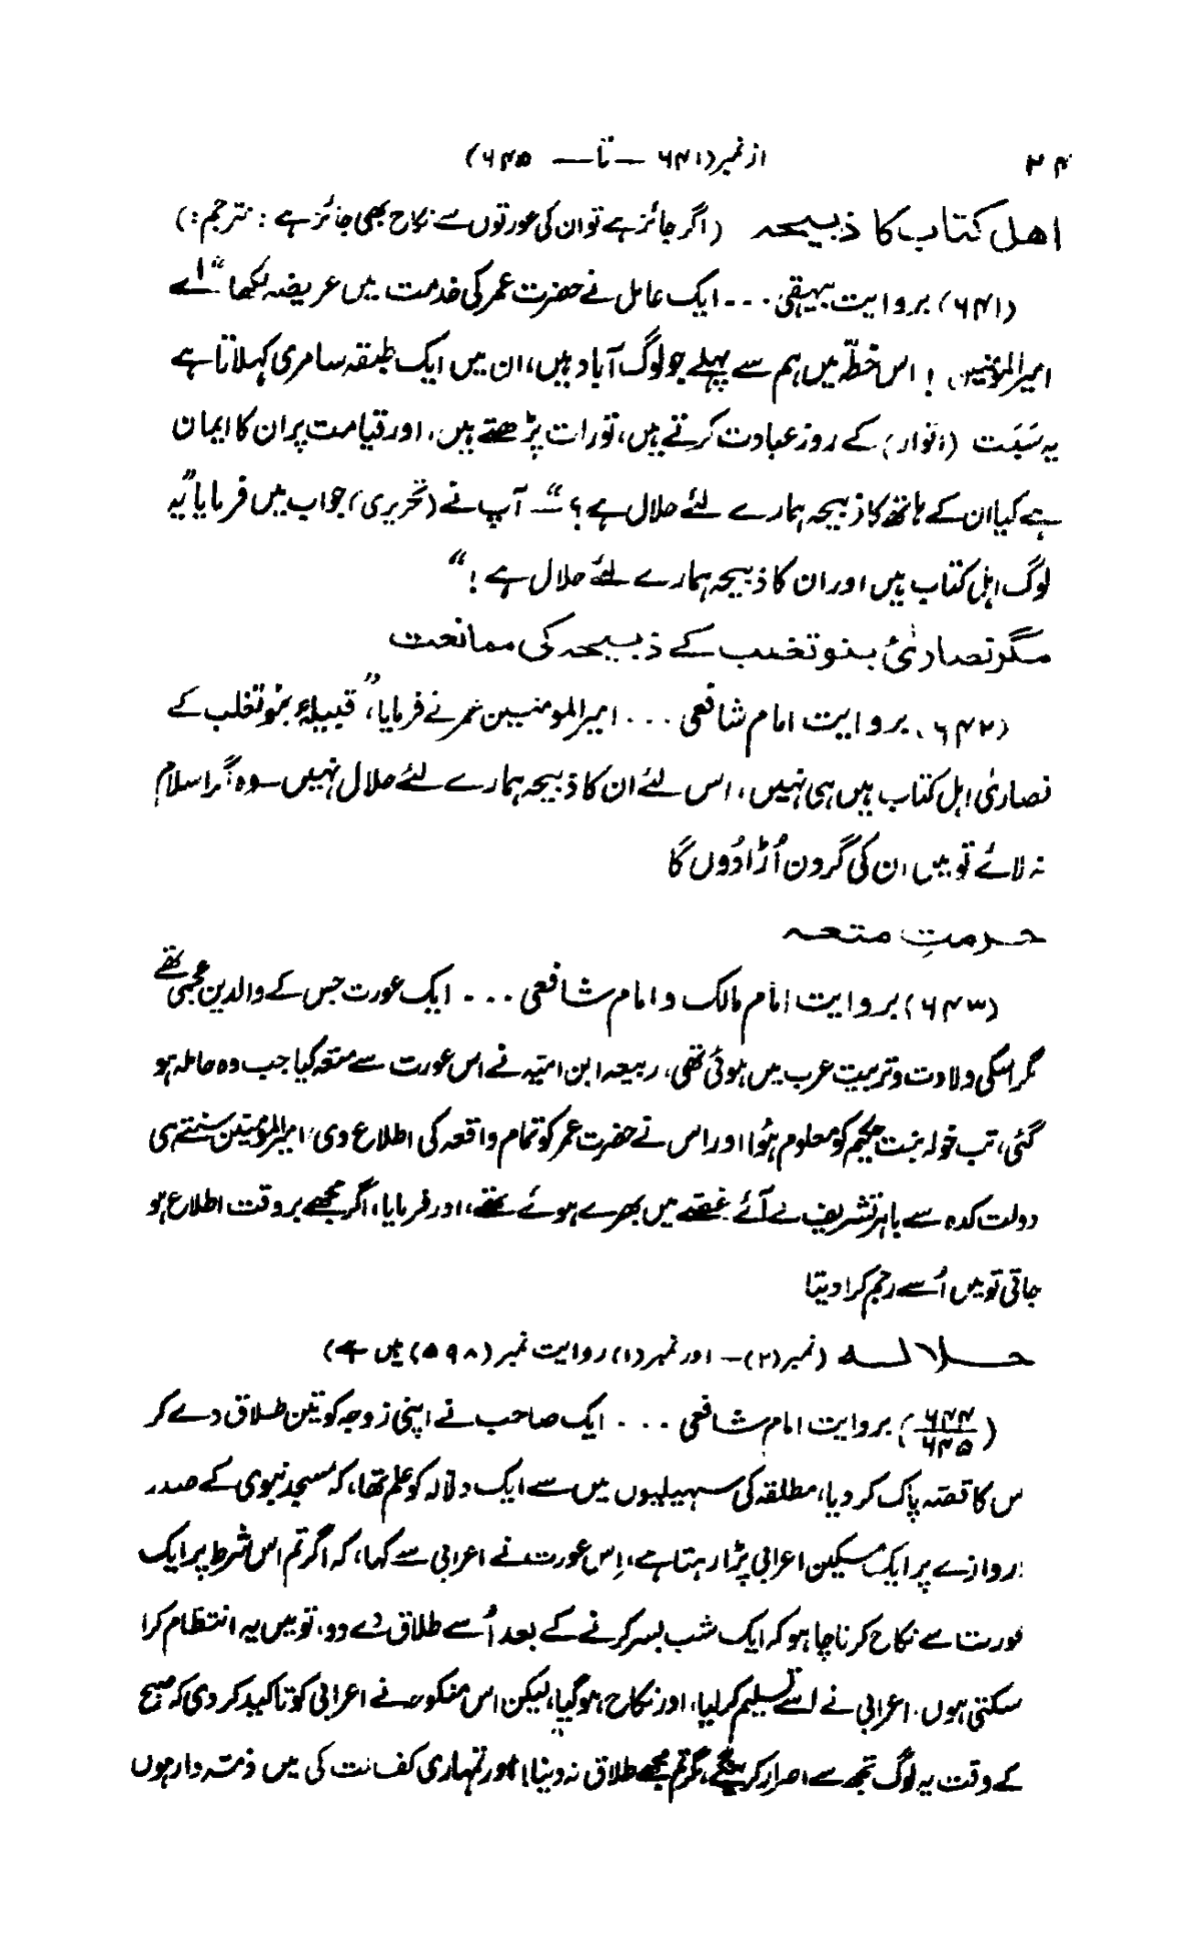 ۲۴ از نمبر (۶۴۱ — تا — ۶۴۵)
اهل کتاب کا ذبیحہ (اگر جائز ہے تو ان کی عورتوں سے نکاح بھی جائز ہے : مترجم :)
(۶۴۱) بروایت بیہقی ... ایک عامل نے حضرت عمر کی خدمت میں عریضہ لکھا "اے
امیر المؤمنین ! اس خطّہ میں ہم سے پہلے جو لوگ آباد ہیں، ان میں ایک طبقہ سامری کہلاتا ہے
یہ سَبَت (اتوار) کے روز عبادت کرتے ہیں، تورات پڑھتے ہیں، اور قیامت پر ان کا ایمان
ہے کیا ان کے ہاتھ کا ذبیحہ ہمارے لئے حلال ہے ؟" — آپ نے (تحریری) جواب میں فرمایا "یہ
لوگ اہل کتاب ہیں اور ان کا ذبیحہ ہمارے لئے حلال ہے !"
مگر نصاریٰ بنو تغلب کے ذبیحہ کی ممانعت
(۶۴۲) بروایت امام شافعی ... امیر المومنین عمر نے فرمایا، "قبیلۂ بنو تغلب کے
نصاریٰ اہل کتاب ہیں ہی نہیں، اس لئے ان کا ذبیحہ ہمارے لئے حلال نہیں — وہ اگر اسلام
نہ لائے تو میں ان کی گردن اُڑا دُوں گا
حرمتِ متعہ
(۶۴۳) بروایت امام مالک و امام شافعی ... ایک عورت جس کے والدین عجمی تھے
مگر اسکی ولادت و تربیت عرب میں ہوئی تھی، ربیعہ ابن امیّہ نے اس عورت سے متعہ کیا جب وہ حاملہ ہو
گئی، تب خولہ بنت حکیم کو معلوم ہُوا اور اس نے حضرت عمر کو تمام واقعہ کی اطلاع دی، امیر المؤمنین سنتے ہی
دولت کدہ سے باہر تشریف لے آئے غصّے میں بھرے ہوئے تھے، اور فرمایا، اگر مجھے بروقت اطلاع ہو
جاتی تو میں اُسے رجم کرا دیتا
حلالہ (نمبر (۲) — اور نمبر (۱) روایت نمبر (۵۹۸) میں ہے)
(۶۴۴/۶۴۵) بروایت امام شافعی ... ایک صاحب نے اپنی زوجہ کو تین طلاق دے کر
س کا قصّہ پاک کر دیا، مطلقہ کی سہیلیوں میں سے ایک دلّالہ کو علم تھا، کہ مسجد نبوی کے صدر
دروازے پر ایک مسکین اعرابی پڑا رہتا ہے، اِس عورت نے اعرابی سے کہا، کہ اگر تم اس شرط پر ایک
عورت سے نکاح کرنا چاہو کہ ایک شب بسر کرنے کے بعد اُسے طلاق دے دو، تو میں یہ انتظام کرا
سکتی ہوں. اعرابی نے اسے تسلیم کر لیا، اور نکاح ہو گیا، لیکن اس منکوحہ نے اعرابی کو تاکید کر دی کہ صبح
کے وقت یہ لوگ تجھ سے اصرار کرینگے، مگر تم مجھے طلاق نہ دینا! اور تمہاری کفالت کی میں ذمّہ دار ہوں